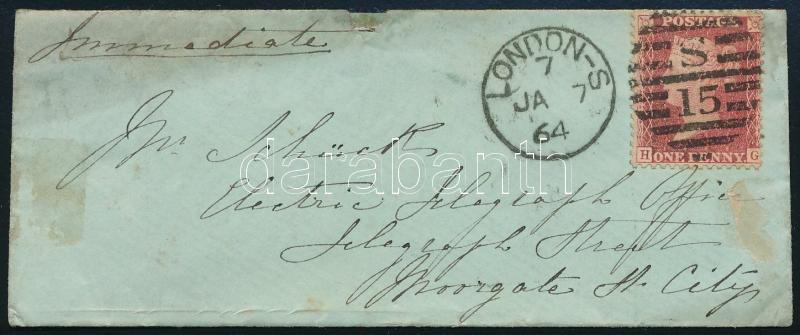 Immediate
LONDON-S
7
JA 7
64
POSTAGE
S
15
H ONE PENNY. G
Mr Schück
Electric Telegraph Office
Telegraph Street
Moorgate St. City
darabanth